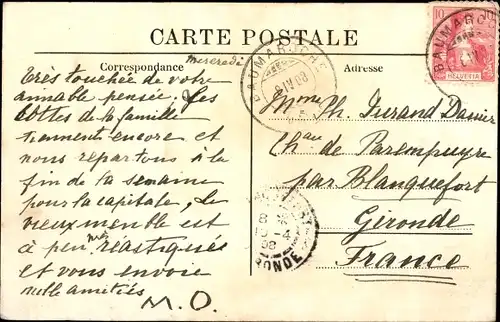 CARTE POSTALE
Correspondance
Mercredi
Adresse
Très touchée de votre
aimable pensée. Les
bottes de la famille
tiennent encore et
nous repartons à la
fin de la semaine
pour la capitale. Le
vieux meuble est
à peu
et vous envoie
mille amitiés
M.O.
Mme Ph. Durand Dassier
Chau de Parempuyre
par Blanquefort
Gironde
France
BAUMAROCHE
IV 08
10 10
HELVETIA
BAUMAROCHE
8
08